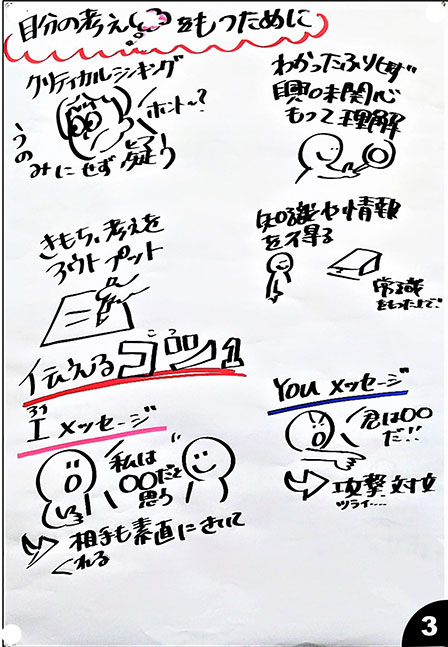 自分の考えをもつために
クリティカルシンキング
ホント〜?
うのみにせず疑う
わかったふりせず
興味関心
もって理解
きもち、考えを
アウトプット
知識や情報
を得る
常識
をもった上で
伝えるコツ1
I メッセージ
私は
〇〇だと
思う
相手も素直にきいて
くれる
You メッセージ
君は〇〇
だ!!
攻撃 対立
ツライ....
3